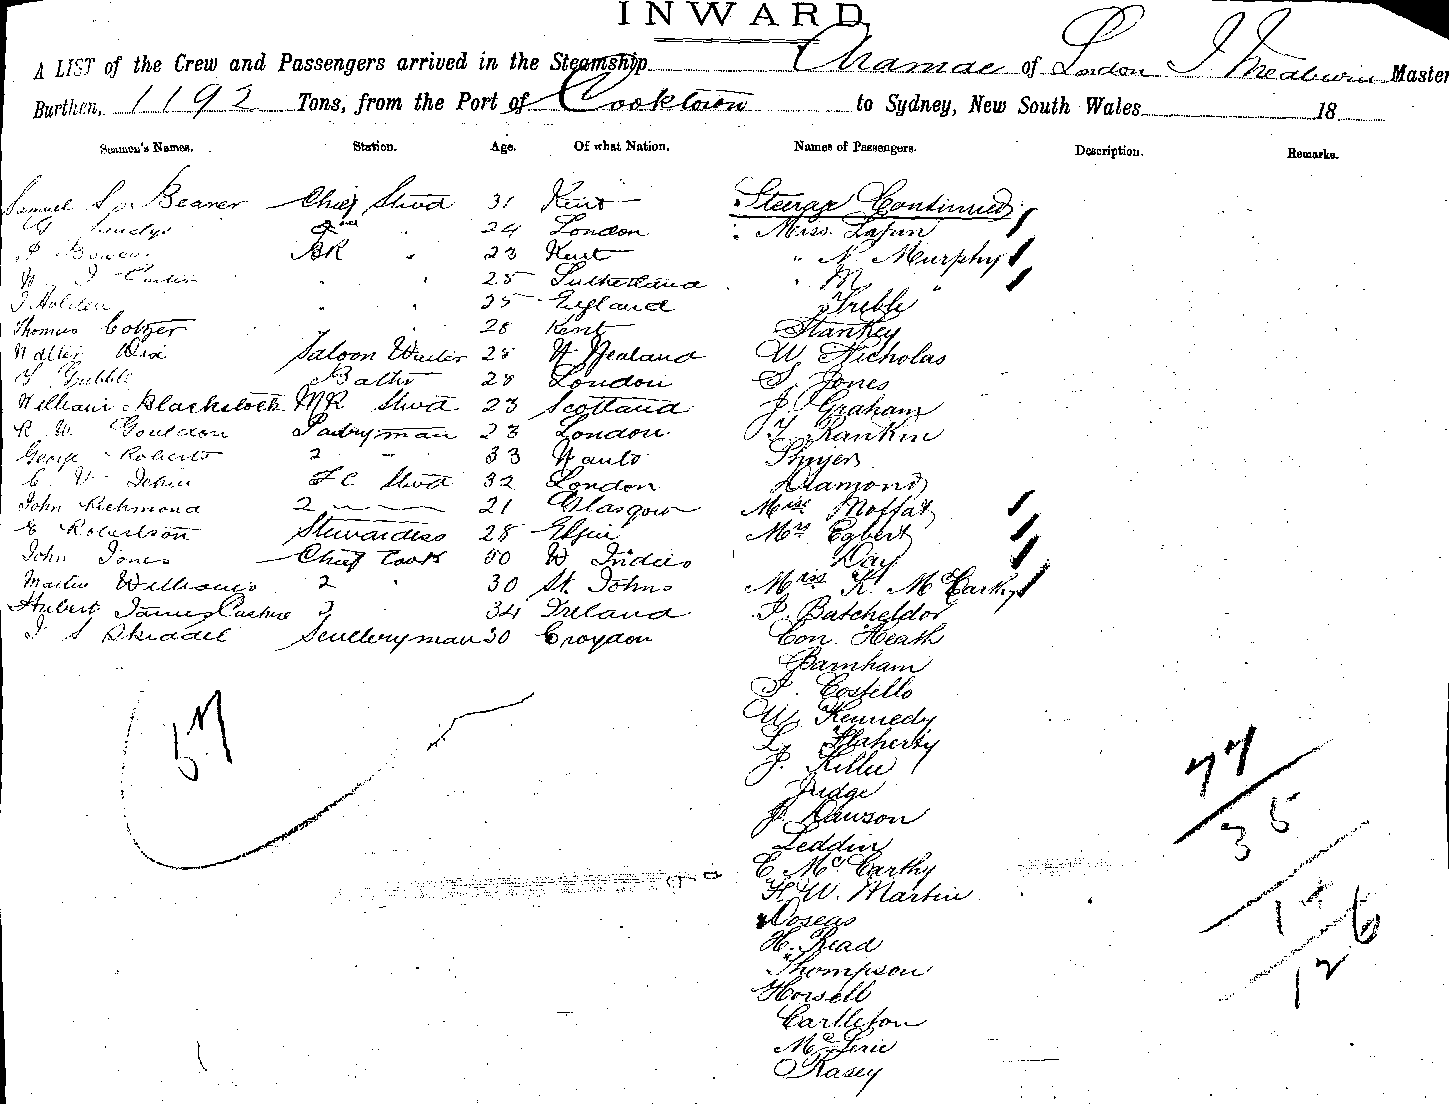 INWARD.
A LIST of the Crew and Passengers arrived in the Steamship Aramac of London Master
Burthen, 1192 Tons, from the Port of Cooktown to Sydney, New South Wales 18
Seamen's Names. Station. Age. Of what Nation. Names of Passengers. Description. Remarks.
Samuel Beaner Chief Stwd 31 Kent Steerage Continued
24 London Miss
J Bowen BR " 23 Kent " N. Murphy
W J " " 25 Sutherland " M "
J Holden " " 25 England Treble
Thomas 28 Kent Stankey
Walter Saloon Waiter 25 N Zealand W. Nicholas
28 London S. Jones
William Blackstock MR Stwd 23 Scotland J. Graham
R W. Gouldon Pantryman 23 London T. Rankin
George Roberts 2 " 33 Thuyer
C V F C Stwd 32 London Diamond
John Richmond 2 21 Glasgow Miss Moffat
E Robertson Stewardess 28 Elgin Mrs Egbert
John Jones Chief Cook 50 W Indies Day
Martin Williams 2 " 30 St. Johns Miss K. McCarthy
Hubert James 3 " 34 Ireland P. Batcheldor
J S Sculleryman 30 Croydon Con. Heath
Barnham
P. Costello
57 W. Kennedy
L. Flaherty
J. Killie
77
Judge
J. Dawson
35
Leddin
C. McCarthy
H. W. Martin
14
Doseas
H. Read
126
Thompson
Howell
Carlleton
Kasey